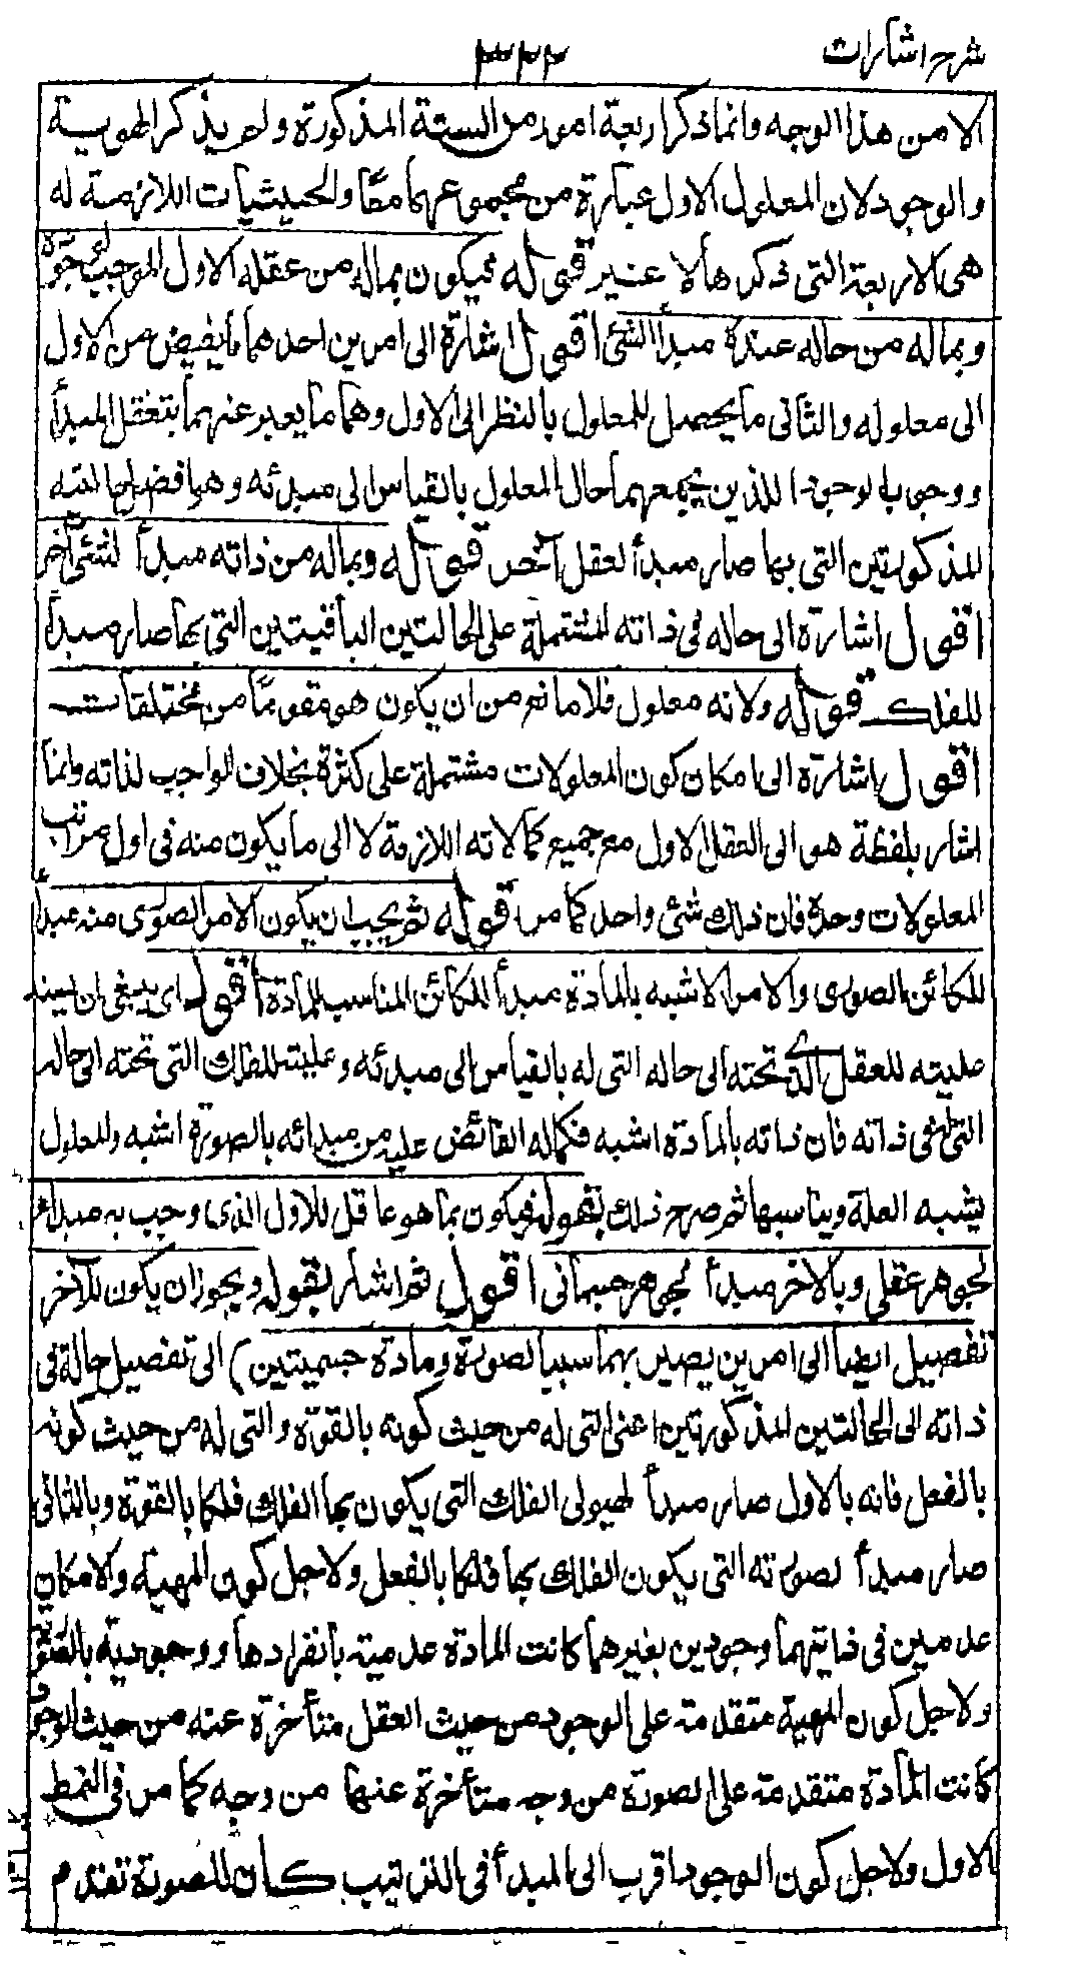 شرح اشارات
٣٣٢
الا من هذا الوجه وانما ذكر اربعة امور من الستة المذكورة ولم يذكر الهوية
والوجود لان المعلول الاول عبارة من مجموعهما معًا والحيثيات اللازمة له
هى الاربعة التى ذكرها لا غير قوله فيكون بماله من عقله الاول الموجب لوجوده
وبماله من حاله عنده مبدأ الشئ اقول اشارة الى امرين احدهما ما يفيض من الاول
الى معلوله والثانى ما يحصل للمعلول بالنظر الى الاول وهما ما يعبر عنهما بتعقل المبدأ
ووجوب الوجود اللذين يجمعهما حال المعلول بالقياس الى مبدئه وهو افضل الحالتيه
المذكورتين التى بها صار مبدأ لعقل آخر قوله وبماله من ذاته مبدأ لشئ آخر
اقول اشارة الى حاله فى ذاته المشتملة على الحالتين الباقيتين التى بها صار مبدأ
للفلك قوله ولانه معلول فلا مانع من ان يكون هو مقومًا من مختلفات
اقول اشارة الى امكان كون المعلولات مشتملة على كثرة بخلاف الواجب لذاته وانما
اشار بلفظة هو الى العقل الاول مع جميع كمالاته اللازمة لا الى ما يكون منه فى اول مراتب
المعلولات وحدة فان ذلك شئ واحد كما مر قوله ثم يجب ان يكون الامر الصورى منه مبدأ
للكائن الصورى والامر الاشبه بالمادة مبدأ للكائن المناسب للمادة اقول اى ينبغى ان يسند
عليته للعقل الذى تحته الى حاله التى له بالقياس الى مبدئه وعليته للفلك التى تحته الى حاله
التى فى ذاته فان ذاته بالمادة اشبه فكماله الفائض عليه من مبدائه بالصورة اشبه والمعلول
يشبه العلة ويناسبها ثم صرح ذلك بقوله فيكون بما هو عاقل للاول الذى وجب به مبدأ
لجوهر عقلى وبالآخر مبدأ لجوهر جسمانى اقول ثم اشار بقوله ويجوز ان يكون للآخر
تفصيل ايضا الى امرين يصير بهما سببا لصورة ومادة جسميتين) الى تفصيل حالة فى
ذاته الى الحالتين المذكورتين اعنى التى له من حيث كونه بالقوة والتى له من حيث كونه
بالفعل فانه بالاول صار مبدأ لهيولى الفلك التى يكون بها الفلك فلكا بالقوة وبالثانى
صار مبدأ لصورته التى يكون الفلك بها فلكا بالفعل ولاجل كون المهية والامكان
عدمين فى ذاتيهما وجودين بغيرهما كانت المادة عدمية بانفرادها ووجودية بالصورة
ولاجل كون المهية متقدمة على الوجود من حيث العقل متأخرة عنه من حيث الوجود
كانت المادة متقدمة على الصورة من وجه متأخرة عنها من وجه كما مر فى النمط
الاول ولاجل كون الوجود اقرب الى المبدأ فى الترتيب كان للصورة تقدم